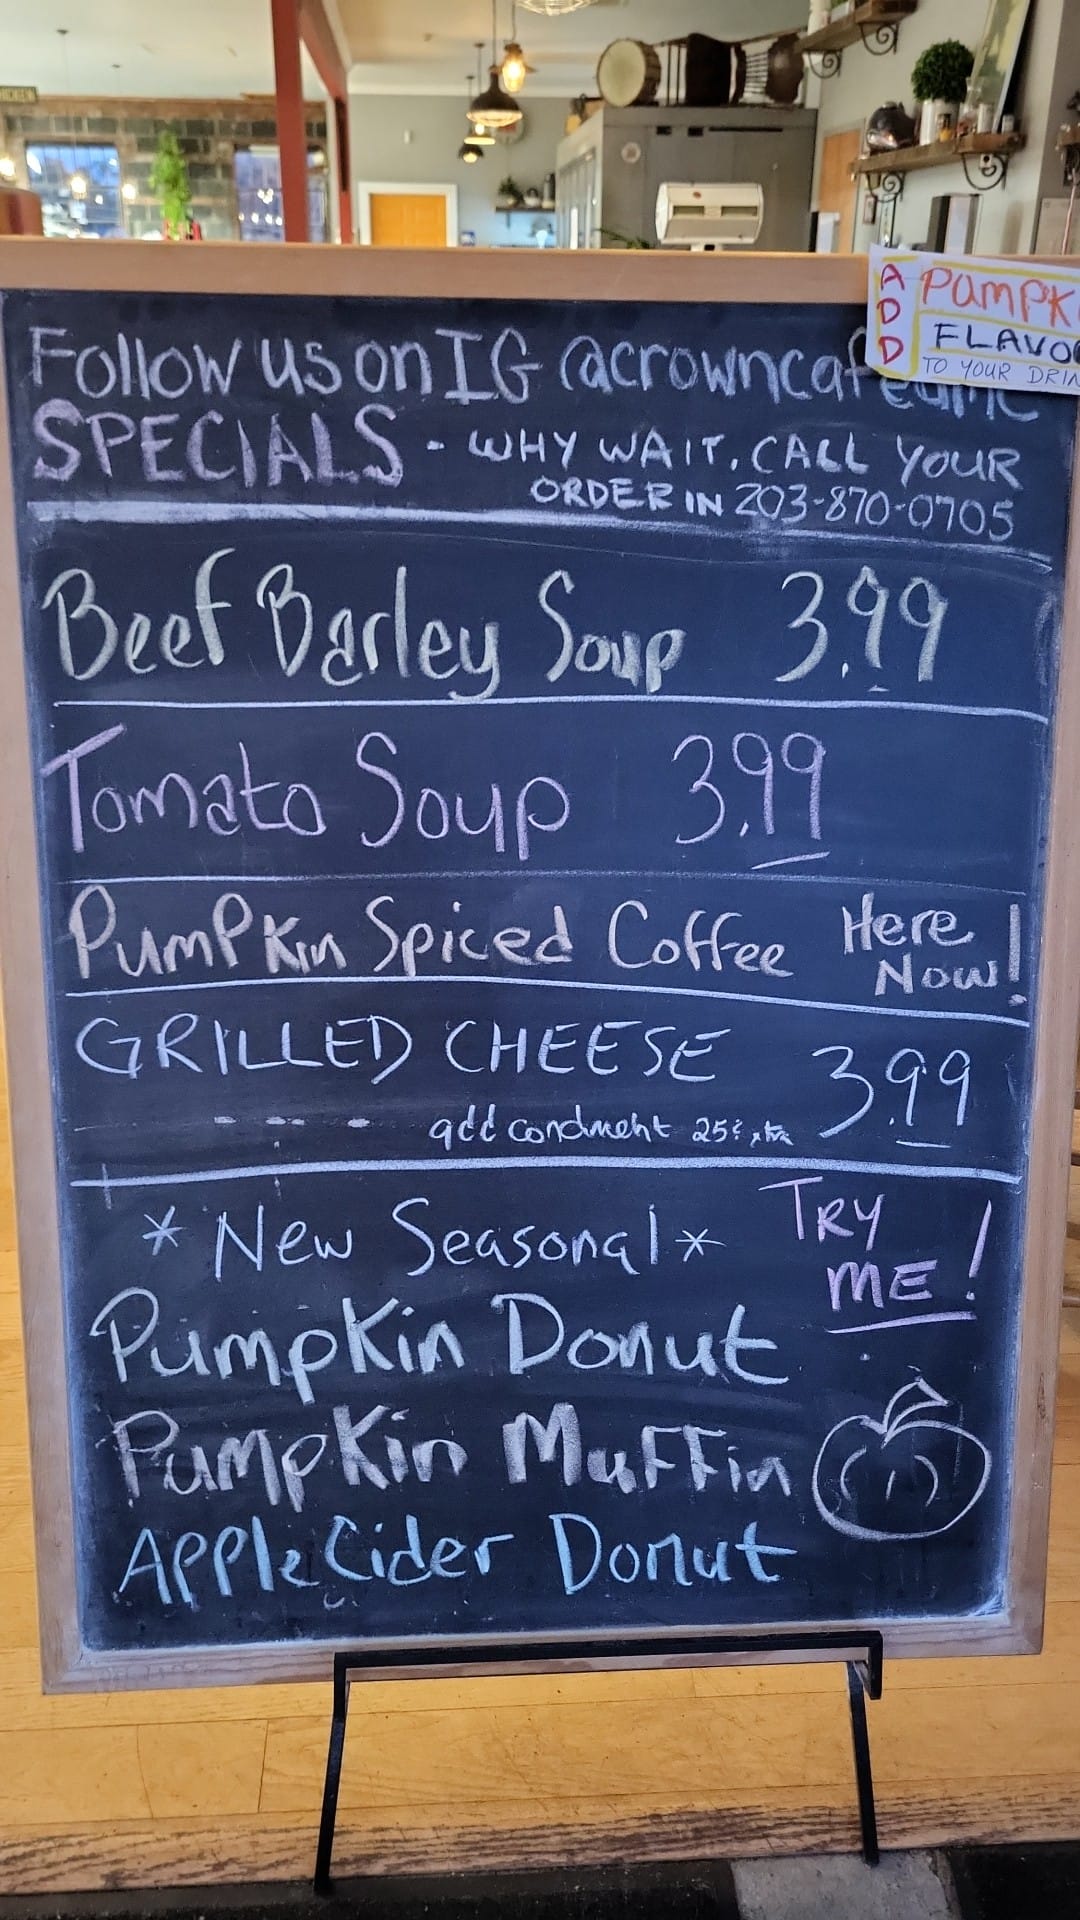 ADD
PUMPK
FLAVO
TO YOUR DRIN
Follow us on IG @crowncafe
SPECIALS - WHY WAIT. CALL YOUR
ORDER IN 203-870-0705
Beef Barley Soup 3.99
Tomato Soup 3.99
PumPkin Spiced Coffee Here
Now!
GRILLED CHEESE 3.99
add condment 25¢ xtra
* New Seasonal * TRY
ME!
Pumpkin Donut
Pumpkin MuFFin
APPle Cider Donut